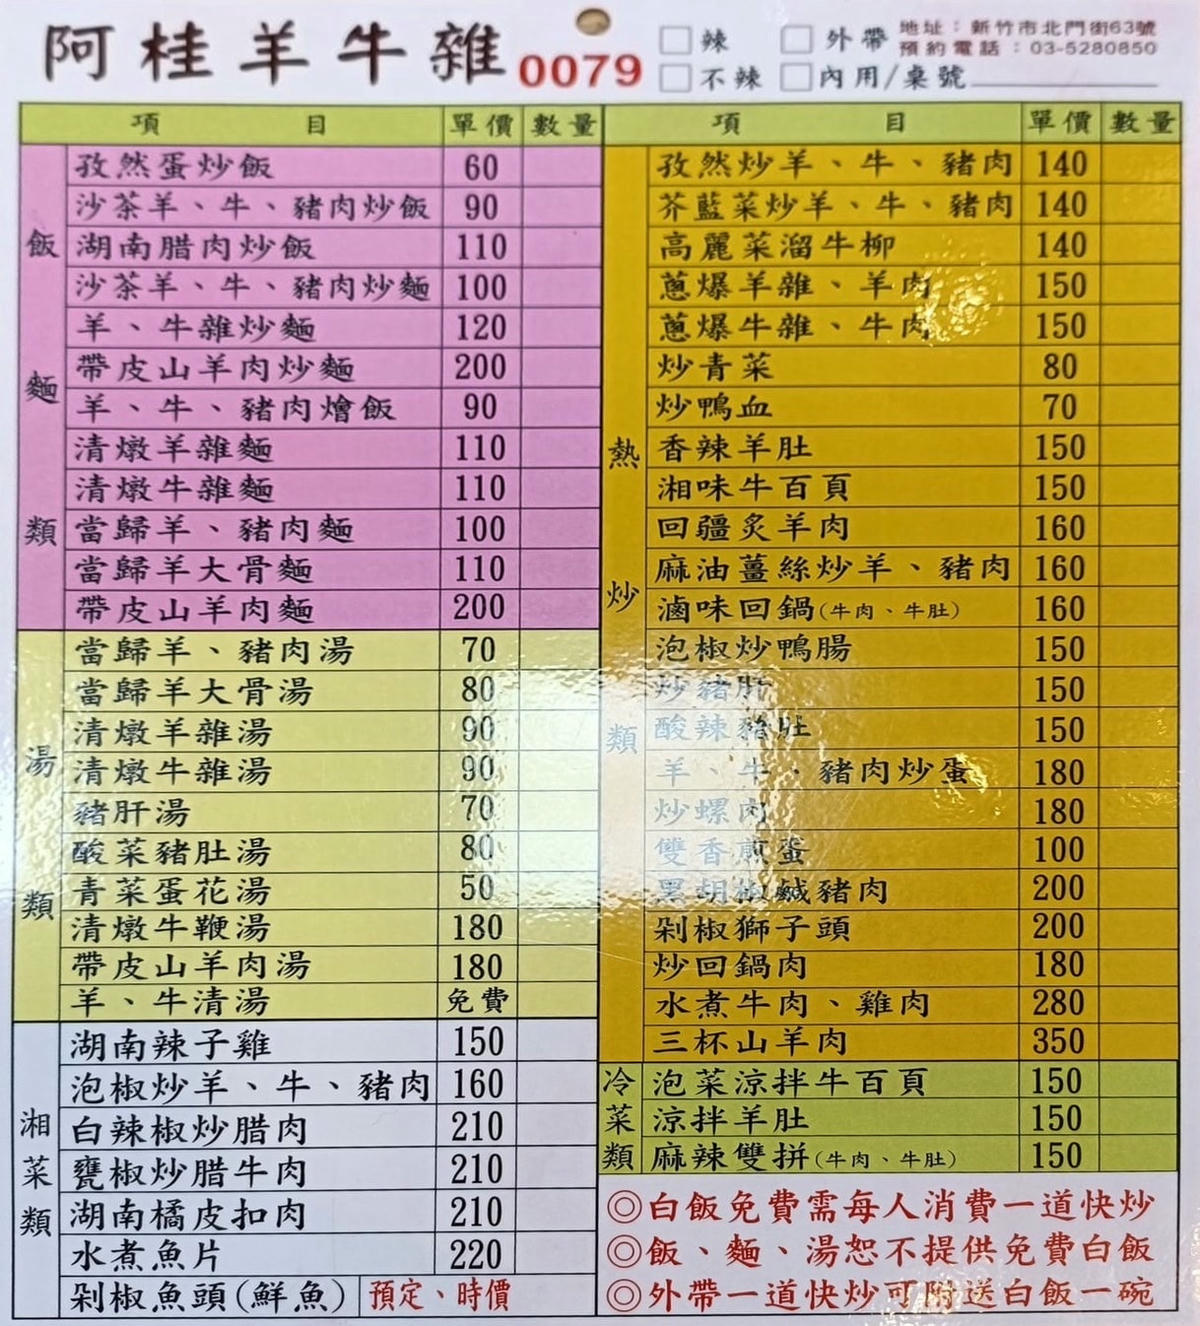 阿桂羊牛雜 0079
□辣 □外帶
□不辣 □內用/桌號
地址：新竹市北門街63號
預約電話：03-5280850
項目 單價 數量
飯麵類
孜然蛋炒飯 60
沙茶羊、牛、豬肉炒飯 90
湖南腊肉炒飯 110
沙茶羊、牛、豬肉炒麵 100
羊、牛雜炒麵 120
帶皮山羊肉炒麵 200
羊、牛、豬肉燴飯 90
清燉羊雜麵 110
清燉牛雜麵 110
當歸羊、豬肉麵 100
當歸羊大骨麵 110
帶皮山羊肉麵 200
湯類
當歸羊、豬肉湯 70
當歸羊大骨湯 80
清燉羊雜湯 90
清燉牛雜湯 90
豬肝湯 70
酸菜豬肚湯 80
青菜蛋花湯 50
清燉牛鞭湯 180
帶皮山羊肉湯 180
羊、牛清湯 免費
湘菜類
湖南辣子雞 150
泡椒炒羊、牛、豬肉 160
白辣椒炒腊肉 210
甕椒炒腊牛肉 210
湖南橘皮扣肉 210
水煮魚片 220
剁椒魚頭(鮮魚) 預定、時價
項目 單價 數量
熱炒類
孜然炒羊、牛、豬肉 140
芥藍菜炒羊、牛、豬肉 140
高麗菜溜牛柳 140
蔥爆羊雜、羊肉 150
蔥爆牛雜、牛肉 150
炒青菜 80
炒鴨血 70
香辣羊肚 150
湘味牛百頁 150
回疆炙羊肉 160
麻油薑絲炒羊、豬肉 160
滷味回鍋(牛肉、牛肚) 160
泡椒炒鴨腸 150
炒豬肝 150
酸辣豬肚 150
羊、牛、豬肉炒蛋 180
炒螺肉 180
雙香煎蛋 100
黑胡椒鹹豬肉 200
剁椒獅子頭 200
炒回鍋肉 180
水煮牛肉、雞肉 280
三杯山羊肉 350
冷菜類
泡菜涼拌牛百頁 150
涼拌羊肚 150
麻辣雙拼(牛肉、牛肚) 150
◎白飯免費需每人消費一道快炒
◎飯、麵、湯恕不提供免費白飯
◎外帶一道快炒可附送白飯一碗